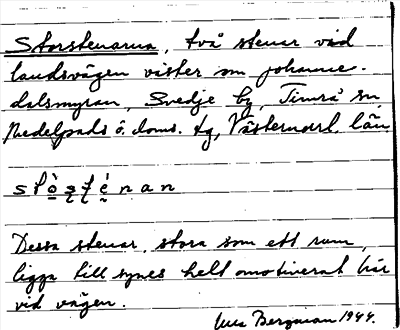 Storstenarna, två stenar vid
landsvägen väster om Johanne-
dalsmyran, Svedje by, Timrå sn,
Medelpads ö. doms. tg, Västernorrl. län
Dessa stenar, stora som ett rum,
ligga till synes helt omotiverat här
vid vägen.
Bergman 1944.